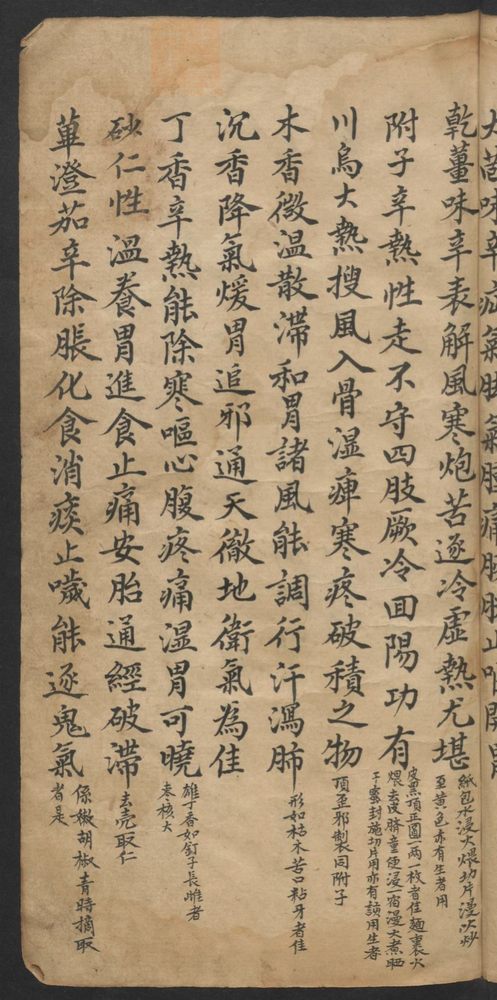 乾薑味辛表解風寒炮苦逐冷虛熱尤堪
紙包水浸火煨切片慢火炒
至黃色亦有生者用
附子辛熱性走不守四肢厥冷囬陽功有
皮黑頂正圓一兩一枚者佳麵裏火
煨去皮臍童便浸一宿慢火煮晒
干密封施切片用亦有該用生者
川烏大熱搜風入骨湿痺寒疼破積之物
頂歪邪製同附子
木香微温散滯和胃諸風能調行汗瀉肺
形如枯木苦口粘牙者佳
沉香降氣煖胃追邪通天徹地衛氣為佳
丁香辛熱能除寒嘔心腹疼痛湿胃可曉
雄丁香如釘子長雌者
棗核大
砂仁性温養胃進食止痛安胎通經破滯
去壳取仁
蓽澄茄辛除脹化食消痰止噦能逐鬼氣
係嫩胡椒青時摘取
者是